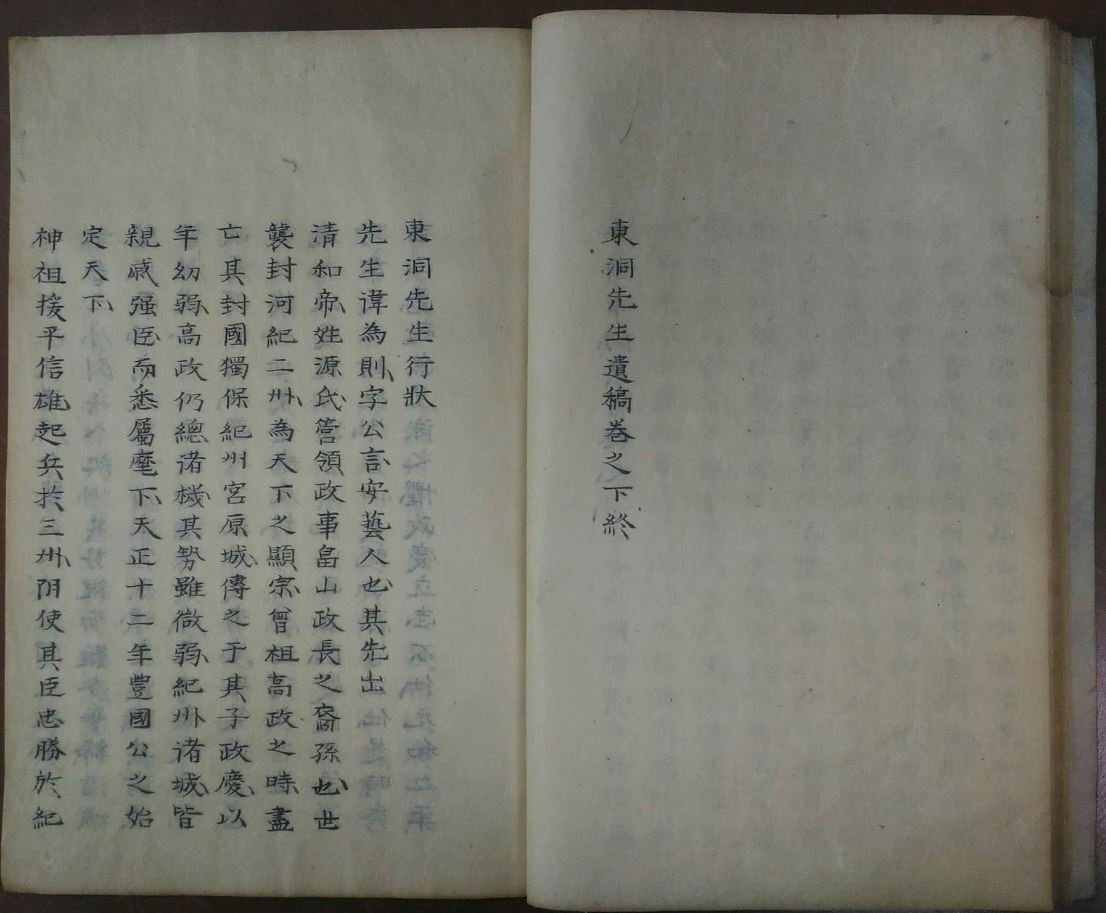 東洞先生遺稿巻之下終
東洞先生行状
先生諱為則字公言安藝人也其先出
清和帝姓源氏管領政事畠山政長之裔孫也世
襲封河紀二州為天下之顯宗曾祖高政之時盡
亡其封國獨保紀州宮原城傳之于其子政慶以
年幼弱高政仍總諸機其勢雖微弱紀州諸城皆
親戚强臣而悉屬麾下天正十二年豊國公之始
定天下
神祖援平信雄起兵於三州阴使其臣忠勝於紀